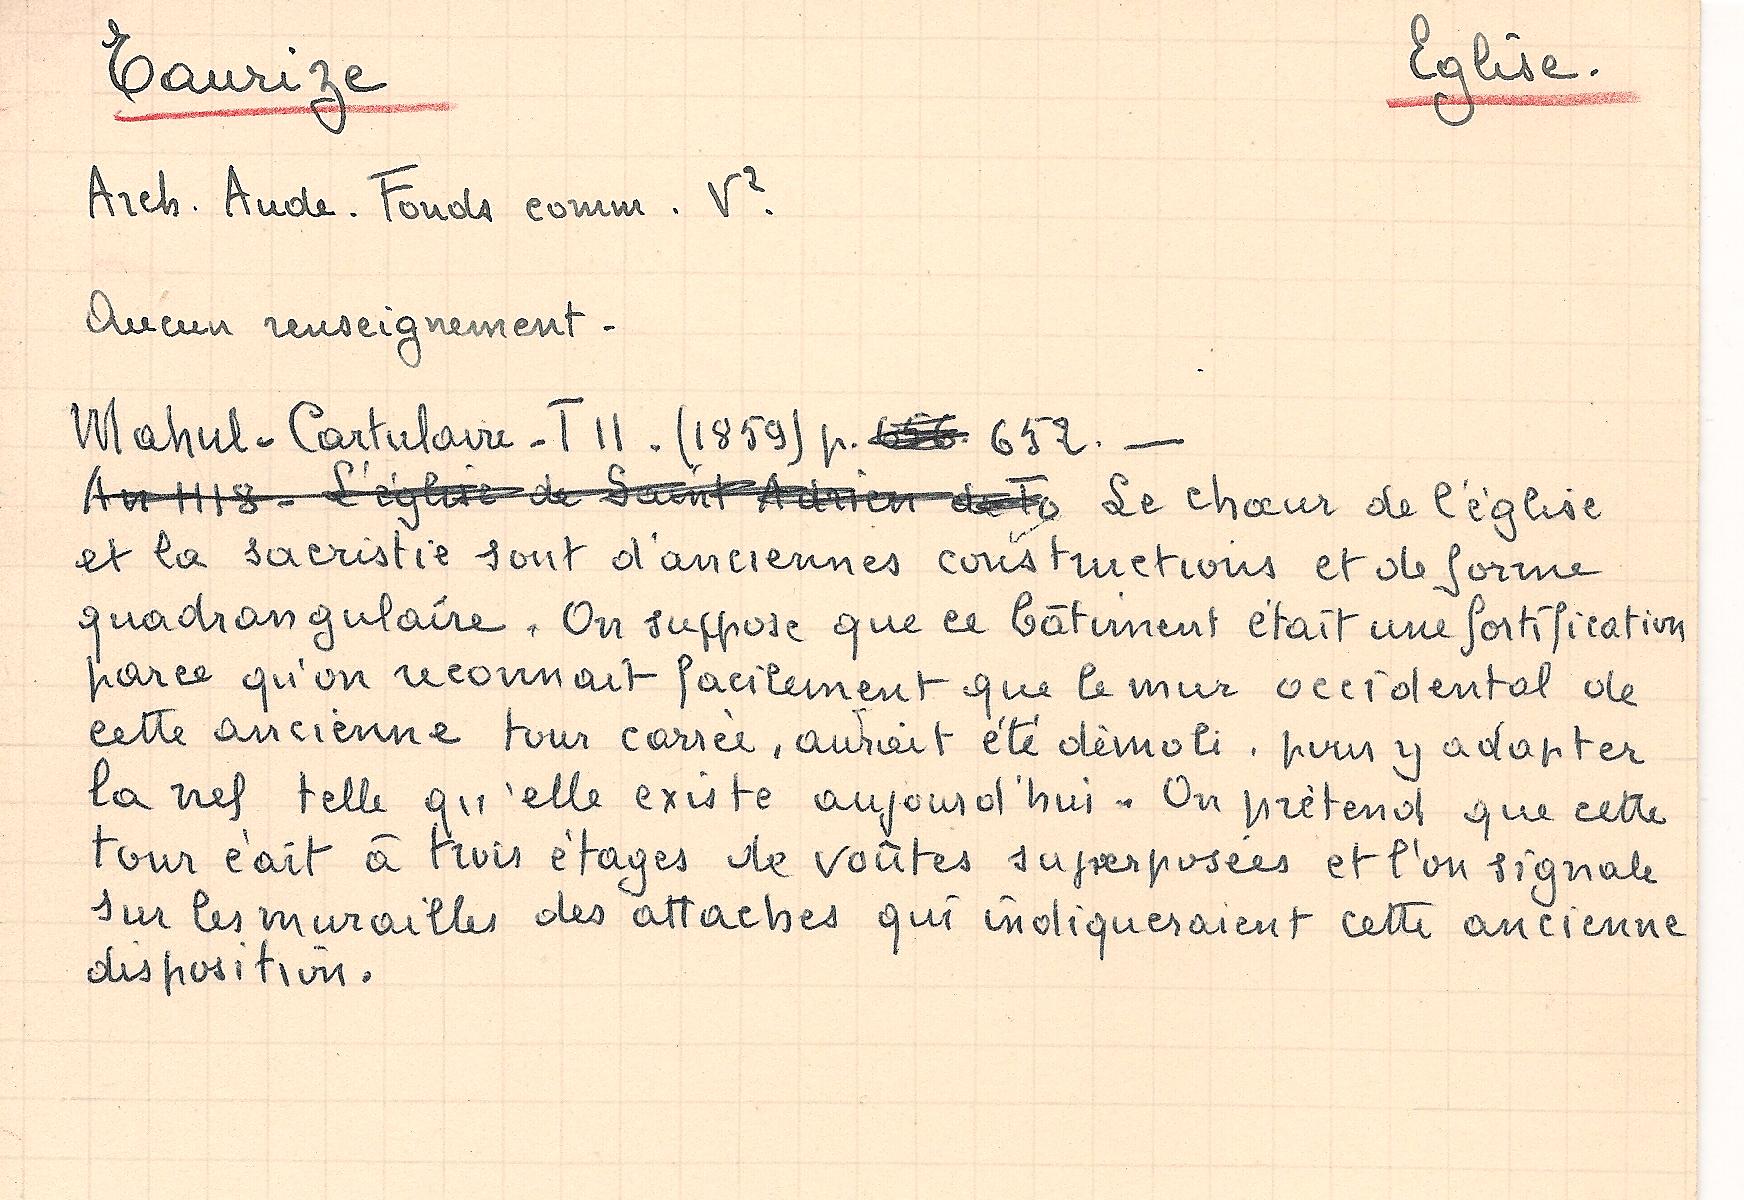 Taurize Eglise.
Arch. Aude. Fonds comm. V?
Aucun renseignement -
Mahul - Cartulaire - T II. (1859) p. 656 652. —
An 1118 - L'église de Saint Adrien de To Le chœur de l'église
et la sacristie sont d'anciennes constructions et de forme
quadrangulaire. On suppose que ce bâtiment était une fortification
parce qu'on reconnait facilement que le mur occidental de
cette ancienne tour carrée, aurait été démoli. pour y adapter
la nef telle qu'elle existe aujourd'hui. On prétend que cette
tour éait à trois étages de voûtes superposées et l'on signale
sur les murailles des attaches qui indiqueraient cette ancienne
disposition.